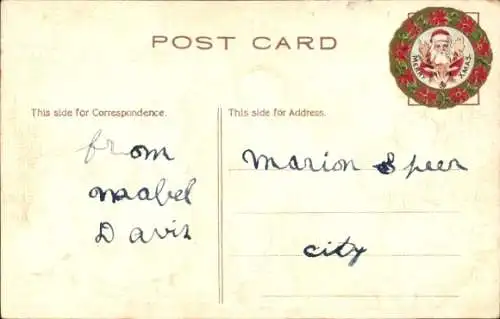 POST CARD
MERRY XMAS
This side for Correspondence.
This side for Address.
from
Mabel
Davis
Marion Speer
City